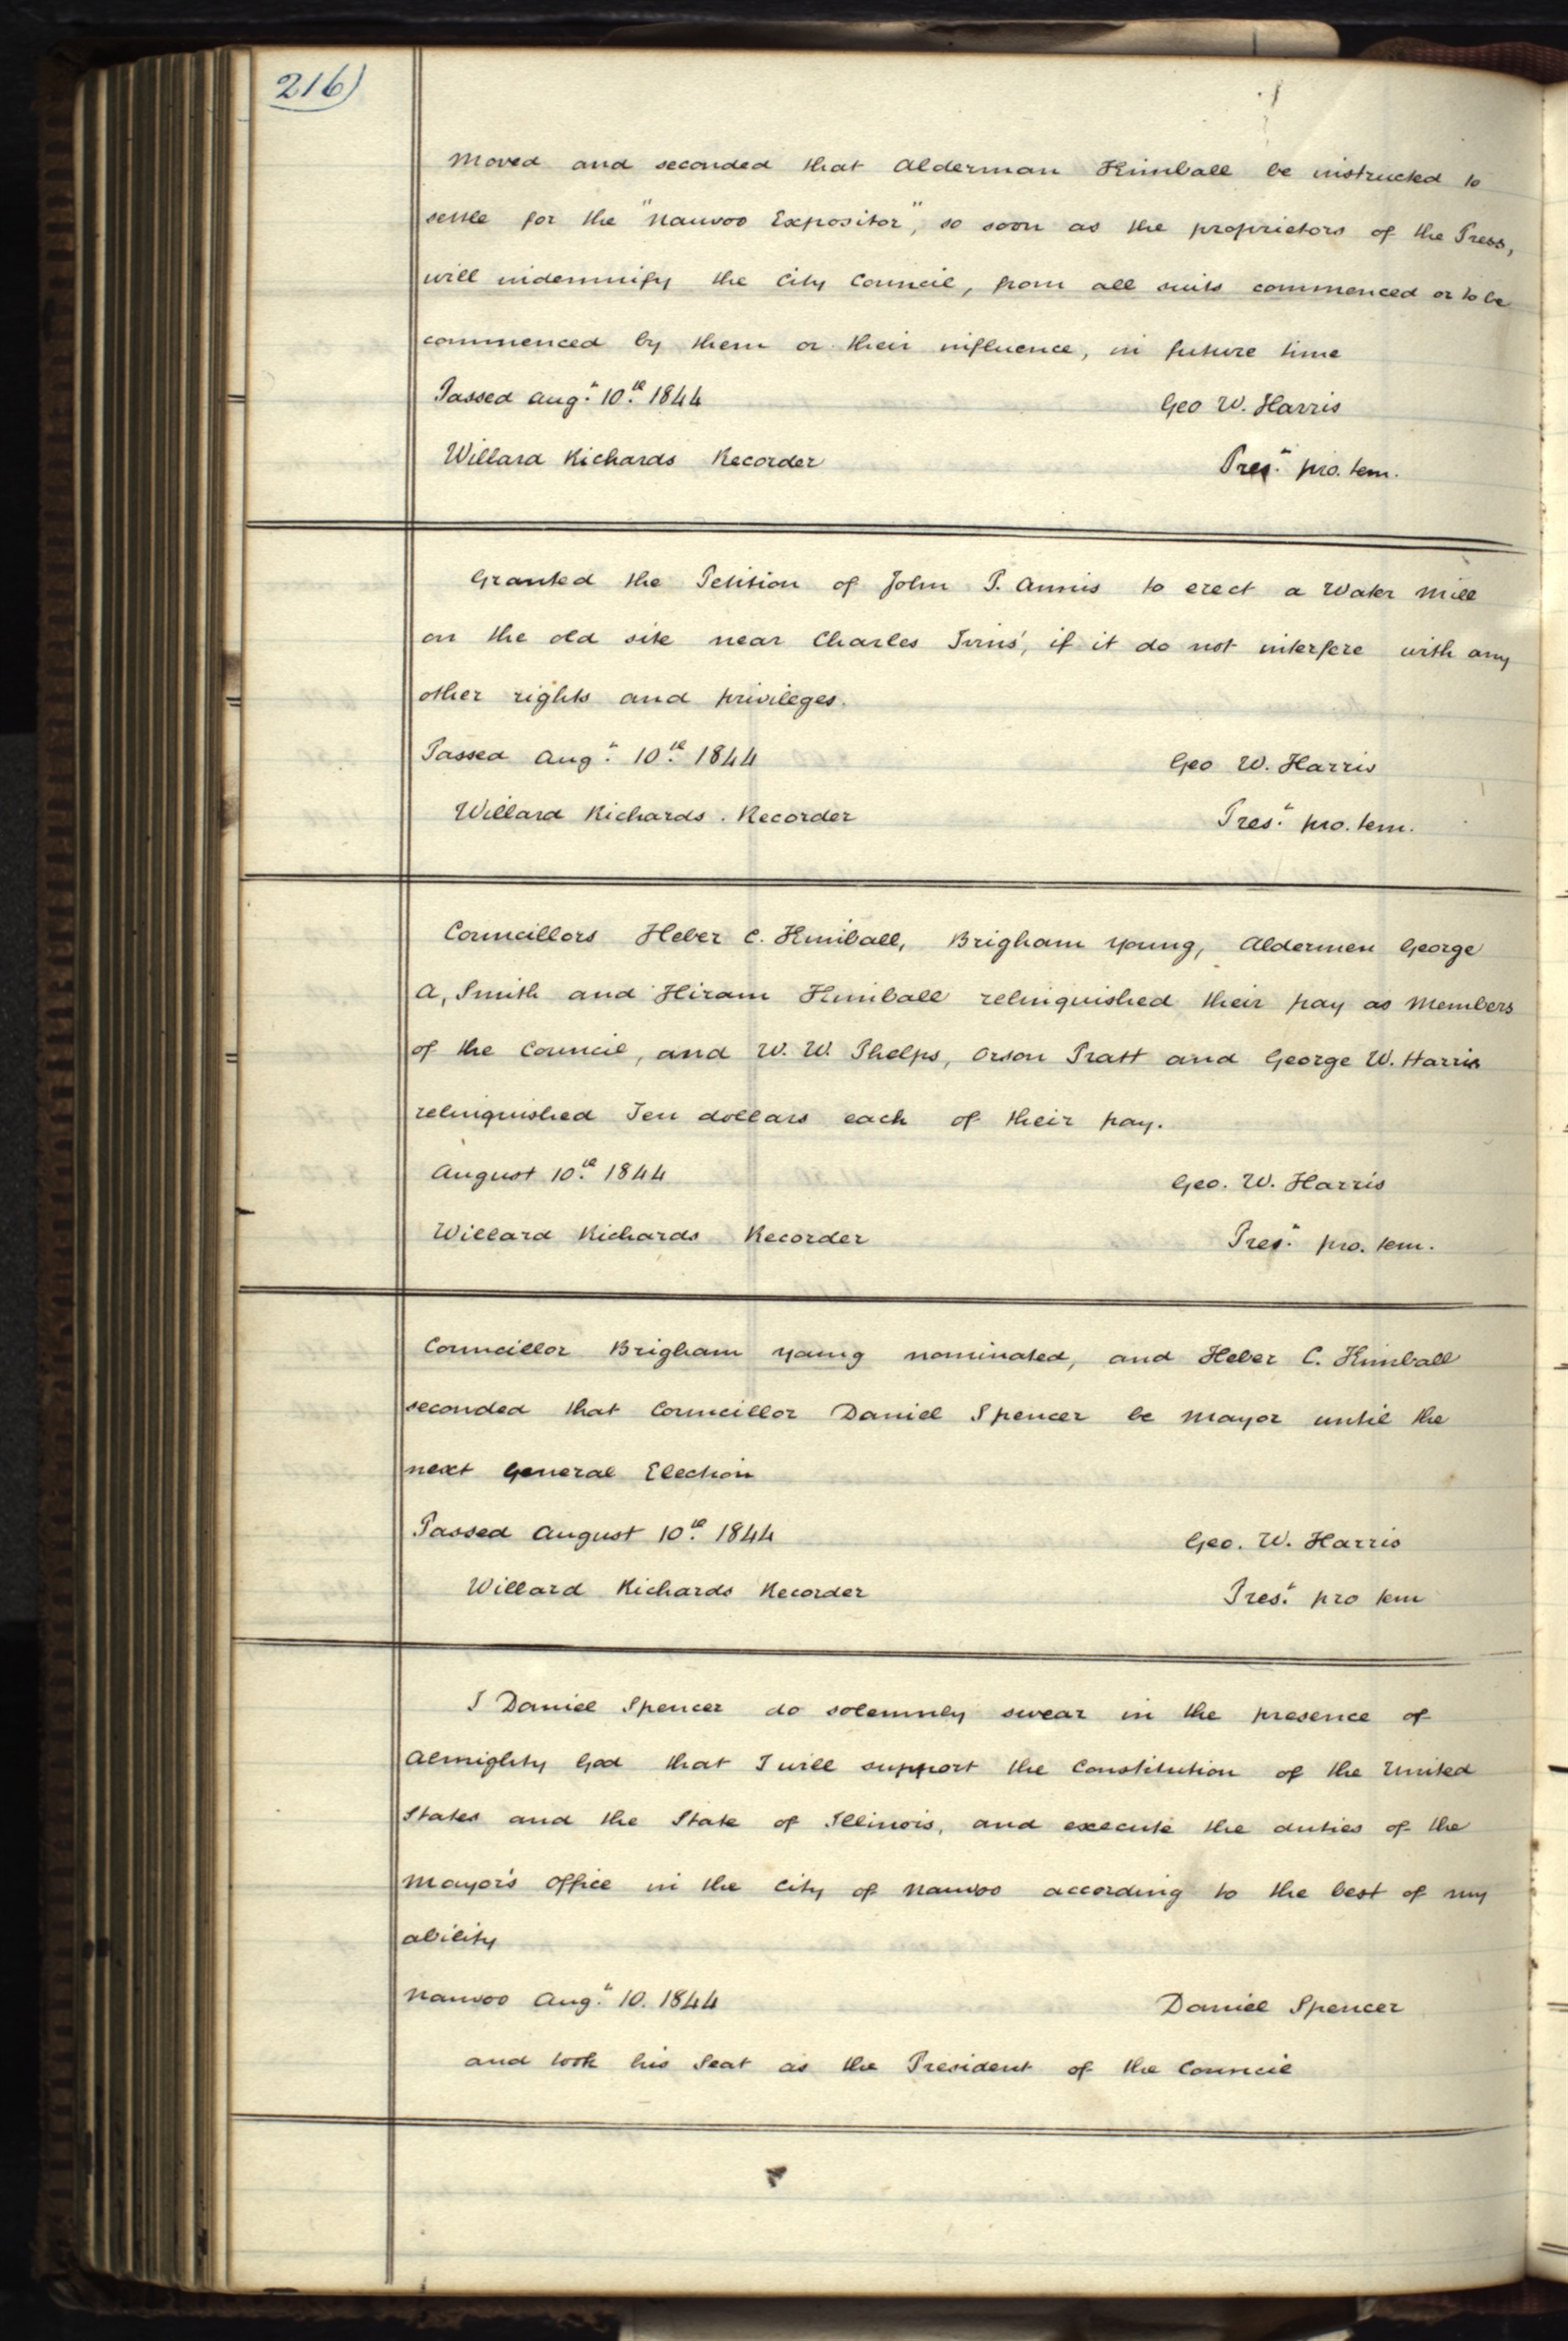 216)
Moved and seconded that Alderman Kimball be instructed to
settle for the "Nauvoo Expositor", so soon as the proprietors of the Press,
will indemnify the City Council, from all suits commenced or to be
commenced by them or their influence, in future time
Passed Aug.t 10.th 1844 Geo W. Harris
Willard Richards Recorder Pres.t pro. tem.
Granted the Petition of John P. Annis to erect a Water Mill
on the old site near Charles Ivins', if it do not interfere with any
other rights and privileges.
Passed Aug.t 10.th 1844 Geo W. Harris
Willard Richards. Recorder Pres.t pro. tem.
Councillors Heber C. Kimball, Brigham Young, Aldermen George
A, Smith and Hiram Kimball relinquished their pay as Members
of the Council, and W. W. Phelps, Orson Pratt and George W. Harris
relinquished Ten dollars each of their pay.
August 10.th 1844 Geo. W. Harris
Willard Richards Recorder Pres.t pro. tem.
Councillor Brigham Young nominated, and Heber C. Kimball
seconded that Councillor Daniel Spencer be Mayor until the
next General Election
Passed August 10.th 1844 Geo. W. Harris
Willard Richards Recorder Pres.t pro tem
I Daniel Spencer do solemnly swear in the presence of
Almighty God that I will support the Constitution of the United
States and the State of Illinois, and execute the duties of the
Mayor's Office in the City of Nauvoo according to the best of my
ability
Nauvoo Aug.t 10. 1844 Daniel Spencer
and took his Seat as the President of the Council